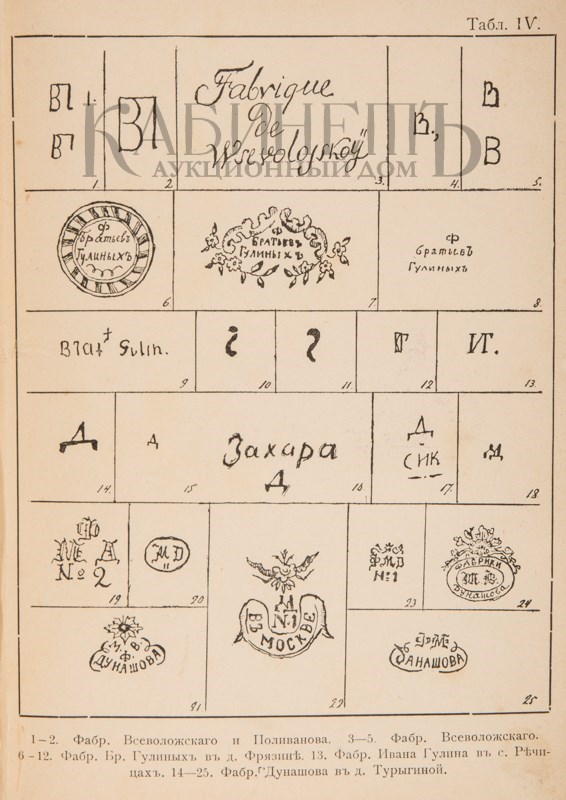 Табл. IV.
КАБИНЕТЪ
АУКЦИОННЫЙ ДОМ
ВП
ВП
1.
ВП
2.
Fabrique
de
Wsevolojskoÿ
3.
В.,
4.
В
В
5.
Ф
Братьевъ
Гулиныхъ
6.
Ф
Братьевъ
Гулиныхъ
7.
Ф
братьевъ
Гулиныхъ
8.
Brat Gulin.
9.
10.
11.
Г
12.
И.
13.
Д
14.
Д
15.
Захара
Д
16.
Д
СИК
17.
18.
Ф
М Д
№ 2
19.
M D
20.
М. В.
Ф.
ДУНАШОВА
21.
№1
ВЪ МОСКВЕ
22.
Ф М D
№1
23.
ФАБРИКИ
Дунашова
24.
ДАНАШОВА
25.
1—2. Фабр. Всеволожскаго и Поливанова. 3—5. Фабр. Всеволожскаго.
6-12. Фабр. Бр. Гулиныхъ въ д. Фрязинѣ. 13. Фабр. Ивана Гулина въ с. Рѣчи-
цахъ. 14—25. Фабр. Дунашова въ д. Турыгиной.